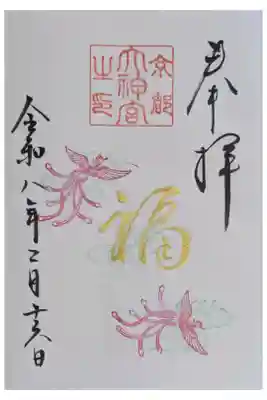 奉拝
京都
大神宮
之印
福
令和八年二月十六日